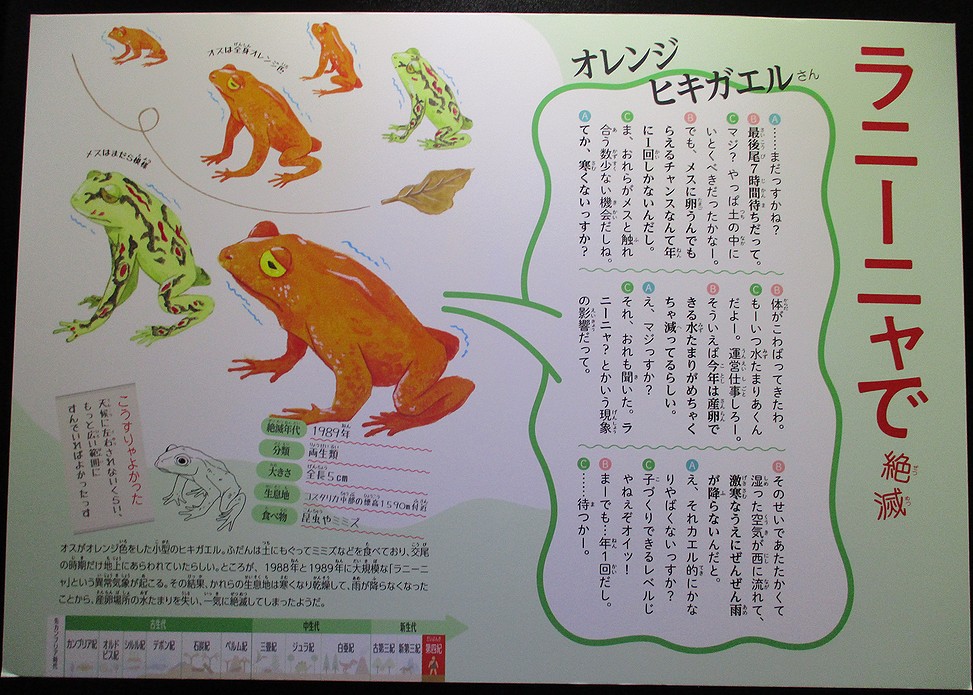 ラニーニャで絶滅
オレンジ
ヒキガエルさん
A ……まだっすかね?
B 最後尾7時間待ちだって。
C マジ? やっぱ土の中に
いとくべきだったかなー。
B でも、メスに卵うんでも
らえるチャンスなんて年
に1回しかないんだし。
C ま、おれらがメスと触れ
合う数少ない機会だしね。
A てか、寒くないっすか?
B 体がこわばってきたわ。
C もーいつ水たまりあくん
だよー。運営仕事しろー。
B そういえば今年は産卵で
きる水たまりがめちゃく
ちゃ減ってるらしい。
A え、マジっすか?
C それ、おれも聞いた。ラ
ニーニャ?とかいう現象
の影響だって。
B そのせいであたたかくて
湿った空気が西に流れて、
激寒なうえにぜんぜん雨
が降らないんだと。
A え、それカエル的にかな
りやばくないっすか?
C 子づくりできるレベルじ
ゃねぇぞオイッ!
B まーでも…年1回だし。
C ……待つかー。
オスは全身オレンジ色
メスはまだら模様
こうすりゃよかった
天候に左右されないくらい、
もっと広い範囲に
すんでいればよかったっす
絶滅年代 1989年
分類 両生類
大きさ 全長5cm
生息地 コスタリカ中部の標高1590m付近
食べ物 昆虫やミミズ
オスがオレンジ色をした小型のヒキガエル。ふだんは土にもぐってミミズなどを食べており、交尾
の時期だけ地上にあらわれていたらしい。ところが、1988年と1989年に大規模な「ラニーニ
ャ」という異常気象が起こる。その結果、かれらの生息地は寒くなり乾燥して、雨が降らなくなった
ことから、産卵場所の水たまりを失い、一気に絶滅してしまったようだ。
古生代 中生代 新生代
先カンブリア時代 カンブリア紀 オルドビス紀 シルル紀 デボン紀 石炭紀 ペルム紀 三畳紀 ジュラ紀 白亜紀 古第三紀 新第三紀 第四紀